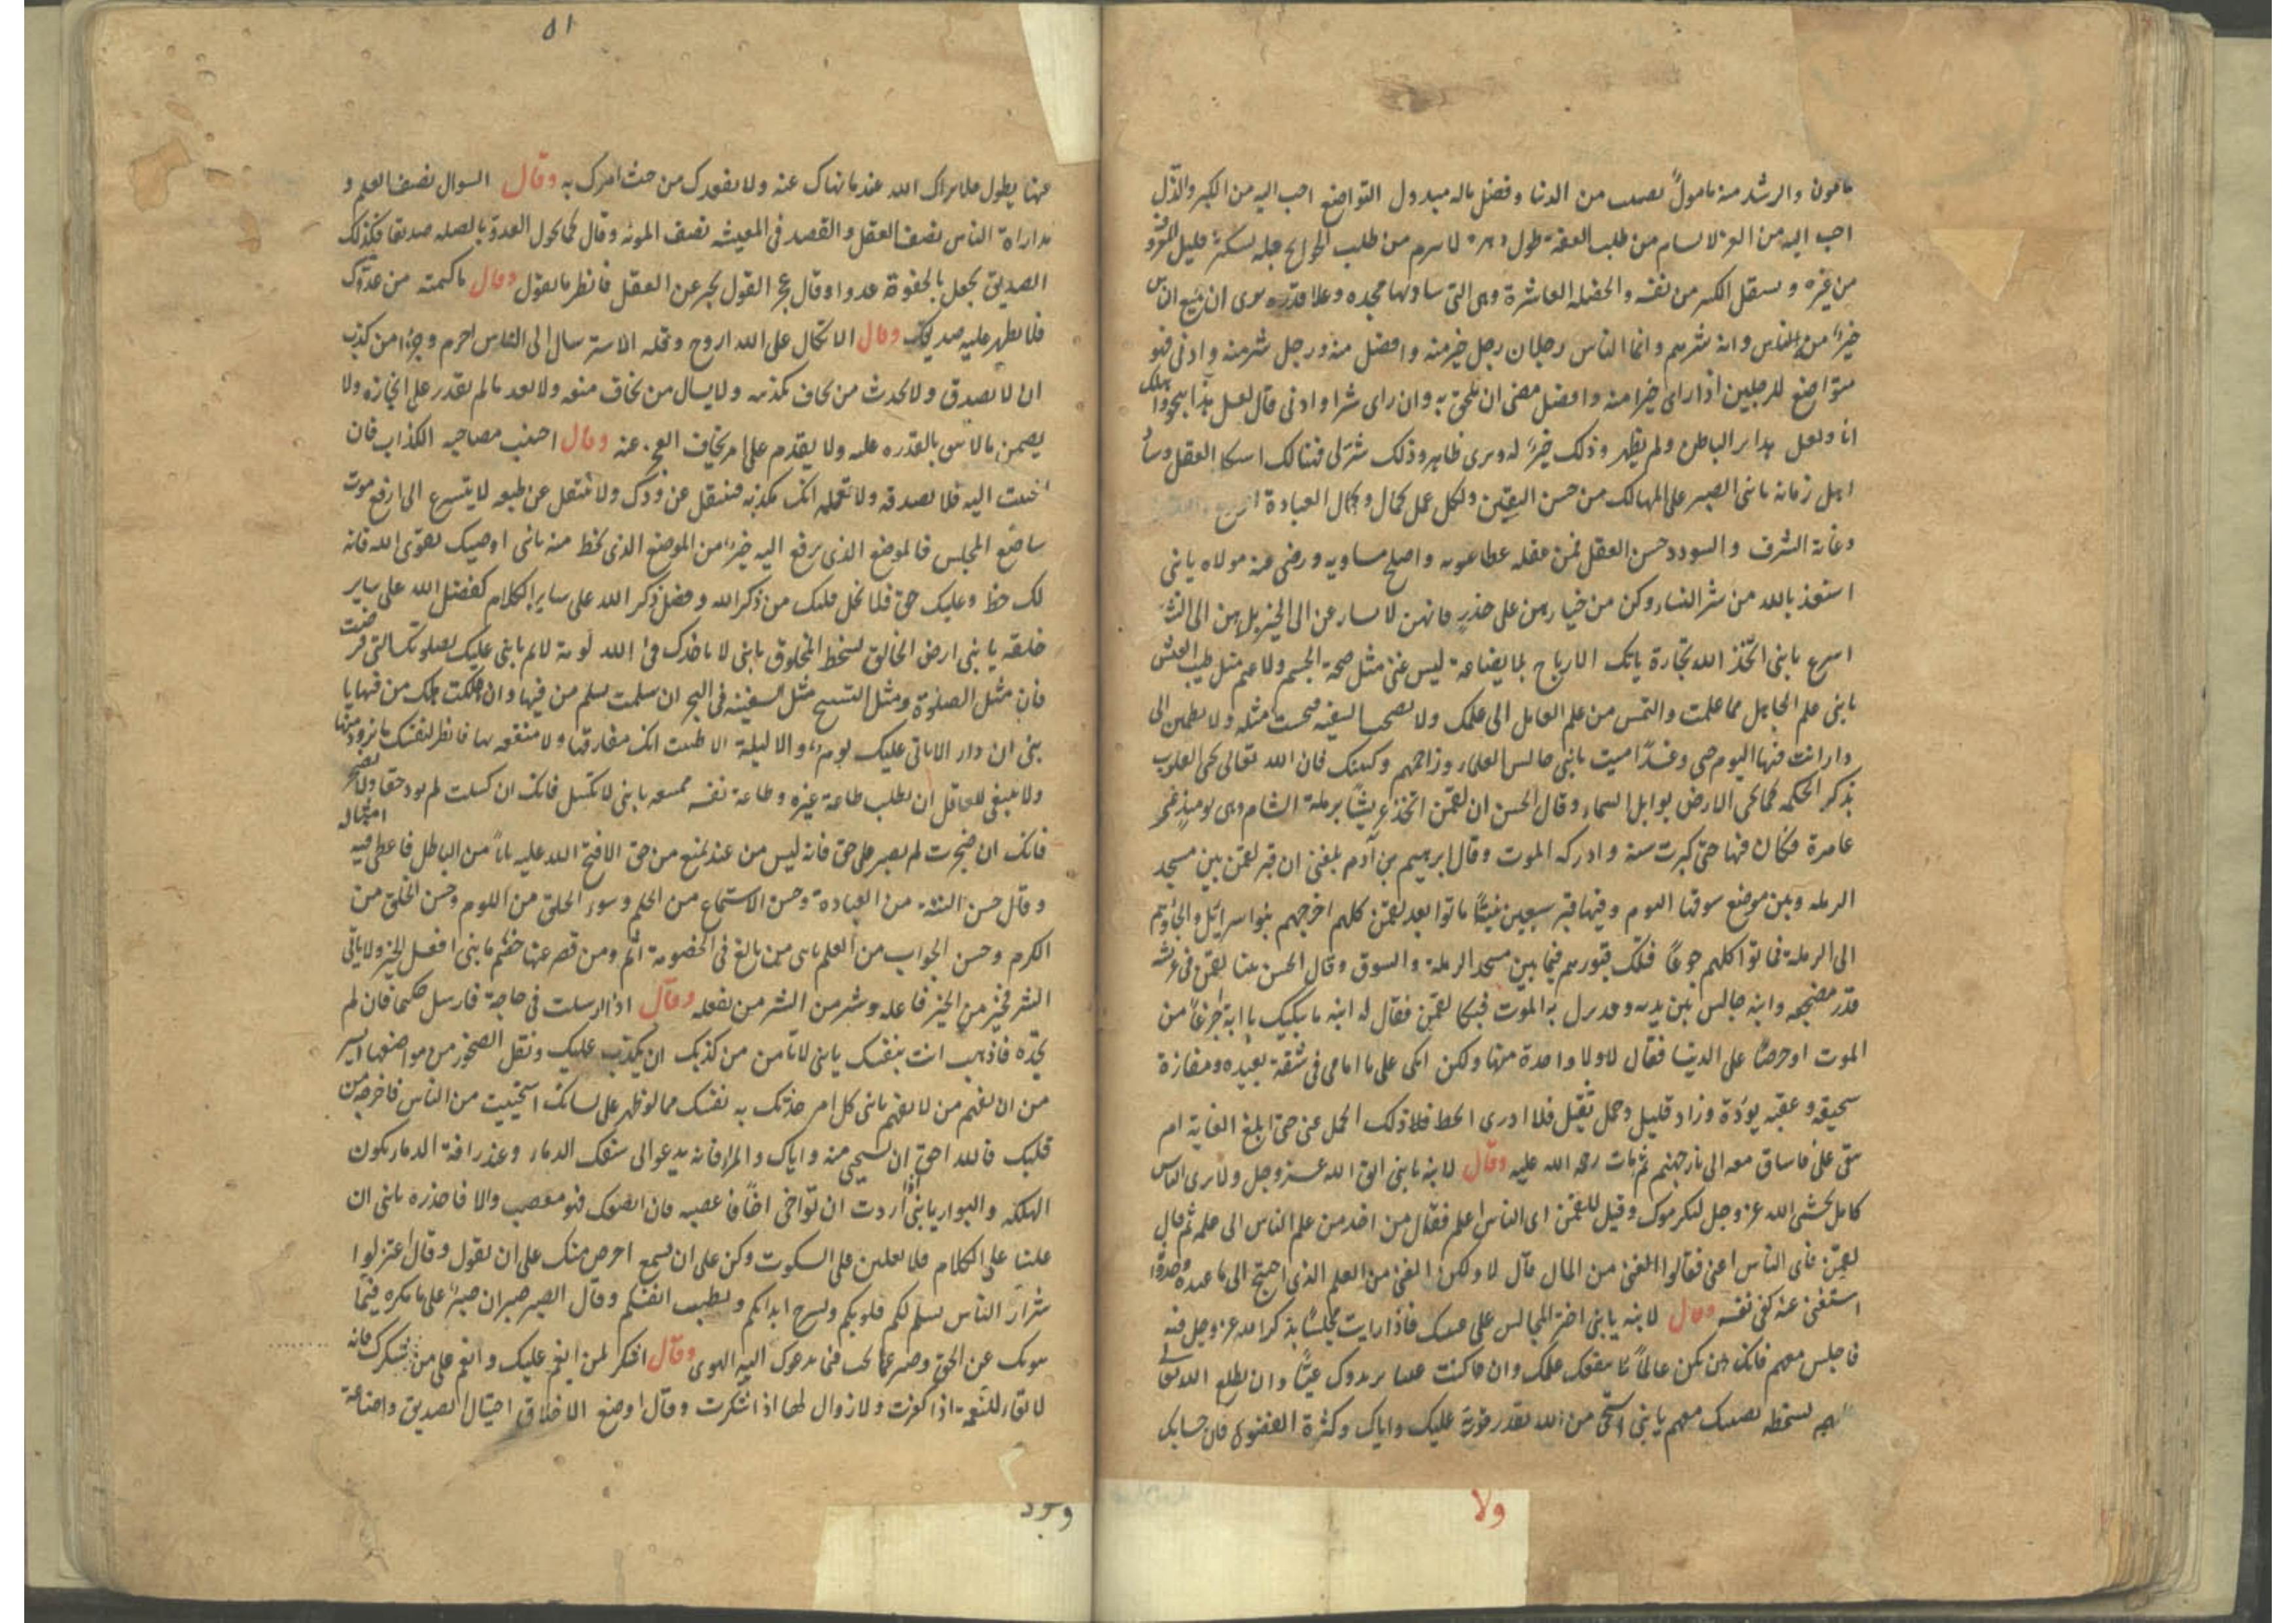 مامون والرشد منه مامولا نصيبه من الدنيا وفضل ماله مبذول التواضع احب اليه من الكبر والذل
احب اليه من العز لا يسام من طلب العقه طول دهره لا يبرم من طلب الحوائج قبله يستكثر قليل المعروف
من غيره ويستقل الكثير من نفسه والخصلة العاشرة وهي التي ساد بها مجده وعلا قدره يرى ان جميع الناس
خيرا منه وانه شرهم وانما الناس رجلان رجل خير منه وافضل منه ورجل شر منه وادنى فهو
متواضع للرجلين اذا راى خيرا منه وافضل مضى ان يلحق به وان راى شرا وادنى قال لعل هذا ينجو واهلك
انا ولعل لهذا بر الباطن ولم يظهر وذلك خير له ويرى ظاهر وذلك شر لي فهنالك استكمل العقل وساد
اهل زمانه يا بني الصبر على المهالك من حسن اليقين ولكل عمل كمال وكمال العبادة الورع واليقين
وغاية الشرف والسودد حسن العقل فمن عقله غطا عيوبه واصلح مساويه ورضي عنه مولاه يا بني
استعذ بالله من شر النساء وكن من خيارهن على حذر فانهن لا يسارعن الى الخير بل هن الى الشر
اسرع يا بني اتخذ الله تجارة ياتك الارباح بلا بضاعة ليس غنى مثل صحة الجسم ولا نعيم مثل طيب العيش
يا بني علم الجاهل مما علمت والتمس من علم العامل الى علمك ولا تصحب السفيه فتحسب مثله ولا تطمئن الى
دار انت فيها اليوم حي وغدا ميت يا بني جالس العلماء وزاحمهم بركبتيك فان الله تعالى يحيي القلوب
بذكر الحكمة كما يحيي الارض بوابل السماء وقال الحسن ان لقمن اتخذ عريشا برملة الشام وهي يومئذ غير
عامرة فكان فيها حتى كبرت سنه وادركه الموت وقال ابرهيم بن آدم بلغني ان قبر لقمن بين مسجد
الرملة وبين موضع سوقها اليوم وفيها قبر سبعين نبيا ماتوا بعد لقمن كلهم اخرجهم بنوا سرائل والجاوهم
الى الرملة فماتوا كلهم جوعا فتلك قبورهم فيما بين مسجد الرملة والسوق وقال الحسن بينا لقمن في عرشه
قدر مضجعه وابنه جالس بين يديه وقد نزل به الموت فبكا لقمن فقال له ابنه ما يبكيك يا ابة اجزعا من
الموت او حرصا على الدنيا فقال لا ولا واحدة منها ولكن ابكى على ما امامي في شقة بعيده ومفازة
سحيقه وعقبة كؤدة وزاد قليل وحمل ثقيل فلا ادري ايحط ذلك الحمل عني حتى ابلغ الغاية ام
يبقى على فاساق معه الى نار جهنم ثم مات رحمه الله عليه وقال لابنه يا بني اتق الله عز وجل ولا ترى الناس
كامل تخشى الله عز وجل ليكرموك وقيل للقمن اى الناس اعلم فقال من اخذ من علم الناس الى علمه ثم قال
لقمن فاى الناس اغنى فقالوا الغنى من المال قال لا ولكن الغنى من العلم الذي احتيج الى ما عنده وجدوا
استغنى عنه كفى نفسه وقال لابنه يا بني اختر المجالس على عينك فاذا رايت مجلسا يذكر الله عز وجل فيه
فاجلس معهم فانك ان تكن عالما ينفعك علمك وان كنت عييا يزيدوك عيا وان يطلع الله تعالى
اليهم بسخطه يصيبك معهم يا بني استحى من الله بقدر قربه عليك واياك وكثرة الفضول فان حسابك
ولا
٥١
عنها يطول فلا يراك الله عند ما نهاك عنه ولا يفقدك من حيث امرك به وقال السوال نصف العلم و
مداراة الناس نصف العقل والقصد في المعيشه نصف المونه وقال كما يحول العدو بالصله صديقا فكذلك
الصديق يجعل بالجفوة عدوا وقال عجز القول يخبر عن العقل فانظر ما تقول وقال ما كتمته من عدوك
فلا تظهر عليه صديقك وقال الاتكال على الله اروح وقلة الاسترسال الى الناس احزم وجزءا من كذب
ان لا يصدق ولا تحدث من تخاف تكذيبه ولا يسال من يخاف منعه ولا يعد ما لم يقدر على انجازه ولا
يضمن ما لا يثق بالقدره عليه ولا يقدم على امر يخاف العجز عنه وقال اجتنب مصاحبه الكذاب فان
اضطررت اليه فلا تصدقه ولا تعلمه انك تكذبه فينتقل عن ودك ولا ينتقل عن طبعه لا يتسرع الى ارفع موضع
فى المجلس فالموضع الذي ترفع اليه خير من الموضع الذي تحط منه يا بني اوصيك بتقوى الله فانه
لك حظ وعليك حق فلا تخل قلبك من ذكر الله وفضل ذكر الله على ساير الكلام كفضل الله على ساير
خلقه يا بني ارض الخالق بسخط المخلوق يا بني لا ياخذك في الله لومة لائم يا بني عليك بصلوتك التي فرضت
فان مثل الصلوة ومثل التسبيح مثل السفينه في البحر ان سلمت سلم من فيها وان هلكت هلك من فيها يا
بني ان دار الا ياتى عليك يوم والا ليلة الا ظننت انك مفارقها ولا منفعه بها فانظر لنفسك ما تزود منها
ولا ينبغي للعاقل ان يطلب طاعة غيره وطاعة نفسه ممتنعه يا بني لا تكسل فانك ان كسلت لم تود حقا ولا تضجر
فانك ان ضجرت لم تصبر على حق فانه ليس من عبد يمنع من حق الا فتح الله عليه بابا من الباطل فاعطى فيه امثاله
وقال حسن النية من العبادة وحسن الاستماع من الحلم وسوء الخلق من اللوم وحسن الخلق من
الكرم وحسن الجواب من العلم يا بني من بالغ في الخصومة اثم ومن قصر عنها خصم يا بني افعل الخير ولا ياتى
الشر فخير من الخير فاعله وشر من الشر من يفعله وقال اذا ارسلت في حاجة فارسل حكيما فان لم
تجده فاذهب انت بنفسك يا بني لا تامن من كذبك ان يكذب عليك ونقل الصخور من مواضعها ايسر
من ان تفهم من لا يفهم يا بني كل امر حدثتك به نفسك مما لو ظهر على لسانك استحييت من الناس فاخرجه من
قلبك فالله احق ان يستحيى منه واياك والمرا فانه يدعو الى سفك الدماء وعند راقة الدماء يكون
الهلكه والبوار يا بني اذا اردت ان تواخى اخا فاغضبه فان انصفك فهو معصب والا فاحذره يا بني ان
غلبت على الكلام فلا تغلبن على السكوت وكن على ان تسمع احرص منك على ان تقول وقال اعتزلوا
شرار الناس تسلم لكم قلوبكم وتسرح ابدانكم وتطيب انفسكم وقال الصبر صبران صبر على ما تكره فيما
ينوبك عن الحق وصبر عما تحب فيما يدعوك اليه الهوى وقال اشكر لمن انعم عليك وانعم على من شكرك فانه
لا بقاء للنعمة اذا كفرت ولا زوال لها اذا شكرت وقال اوضع الاخلاق احتيال الصديق واضاعة